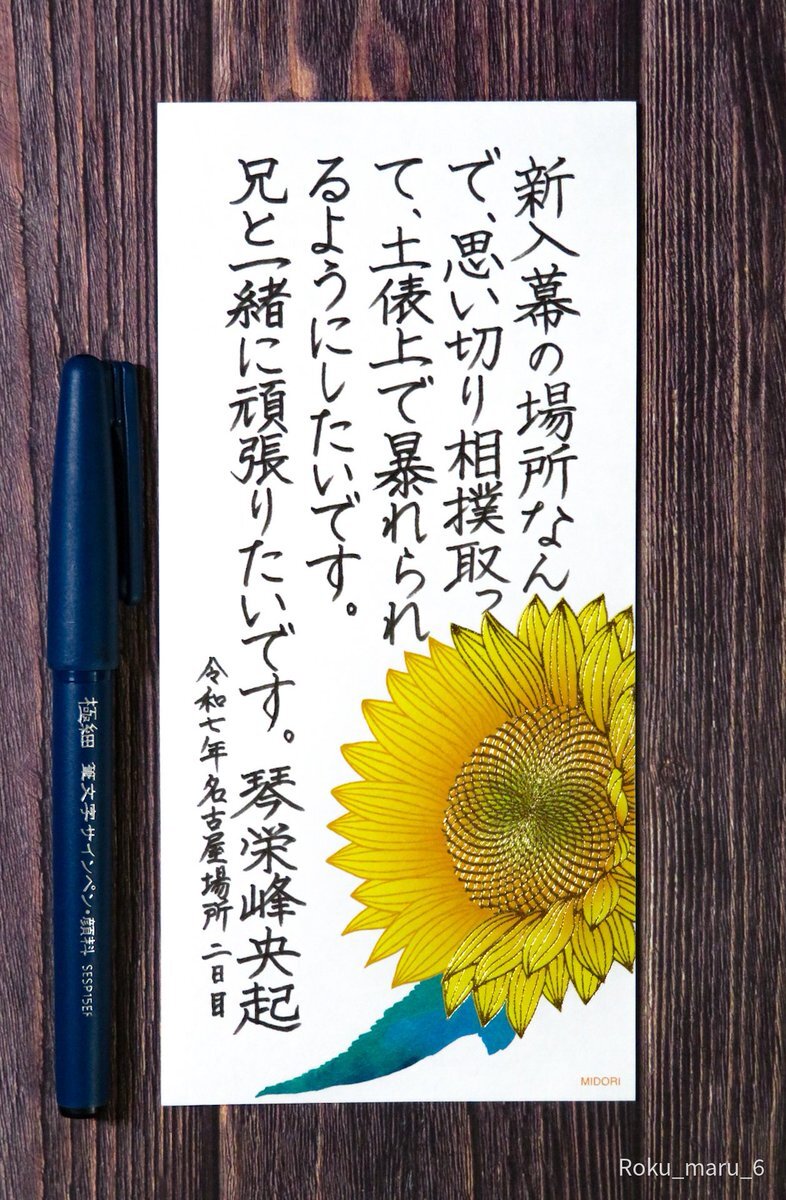 新入幕の場所なん
で、思い切り相撲取っ
て、土俵上で暴れられ
るようにしたいです。
兄と一緒に頑張りたいです。琴栄峰央起
令和七年名古屋場所二日目
極細 筆文字サインペン・顔料 SESP15EF
MIDORI
Roku_maru_6